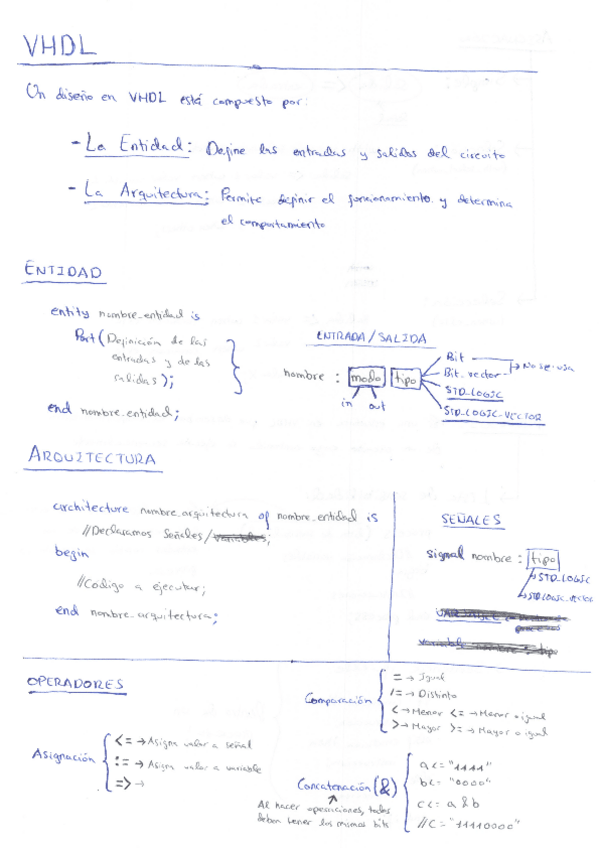 VHDL
Un diseño en VHDL está compuesto por:
- La Entidad: Define las entradas y salidas del circuito
- La Arquitectura: Permite definir el funcionamiento y determina
el comportamiento
ENTIDAD
entity nombre_entidad is
Port (Definición de las
entradas y de las
salidas);
end nombre_entidad;
ENTRADA/SALIDA
nombre : modo tipo
in out
Bit
Bit_vector
→ No se usa
STD_LOGIC
STD_LOGIC_VECTOR
ARQUITECTURA
architecture nombre_arquitectura of nombre_entidad is
//Declaramos Señales/variables;
begin
//Codigo a ejecutar;
end nombre_arquitectura;
SEÑALES
signal nombre : tipo
→ STD_LOGIC
→ STD_LOGIC_VECTOR
variable nombre : tipo
OPERADORES
Asignación
<= → Asigna valor a señal
:= → Asigna valor a variable
=> →
Comparación
= → Igual
/= → Distinto
< → Menor <= → Menor o igual
> → Mayor >= → Mayor o igual
Concatenación (&)
Al hacer operaciones, todos
deben tener los mismos bits
a <= "1111"
b <= "0000"
c <= a & b
//C = "11110000"